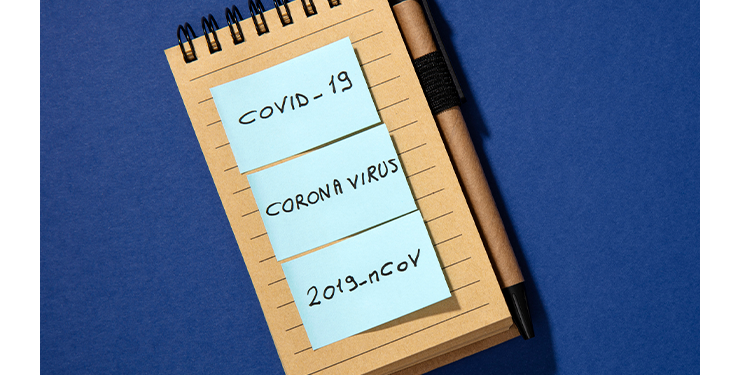 COVID-19
CORONA VIRUS
2019-nCoV